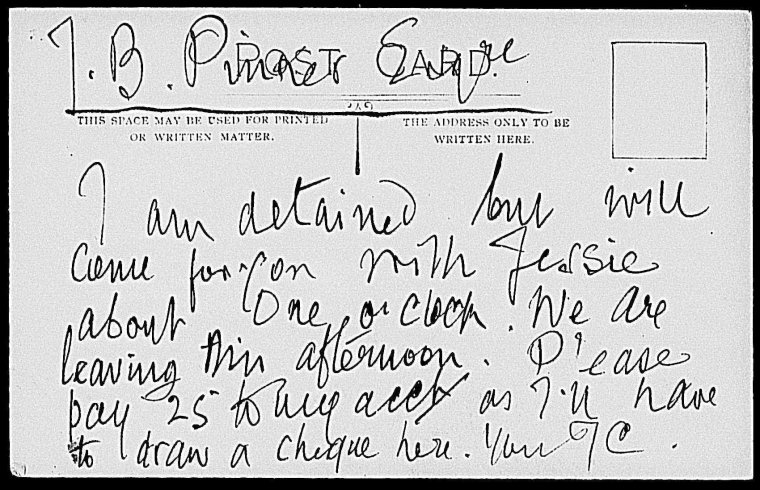 J. B. Pinker Esqre
POST CARD.
THIS SPACE MAY BE USED FOR PRINTED
OR WRITTEN MATTER.
THE ADDRESS ONLY TO BE
WRITTEN HERE.
I am detained but will
come for you with Jessie
about One o'clock. We are
leaving this afternoon. Please
pay 25 to my acct as I'll have
to draw a cheque here. Yours JC.